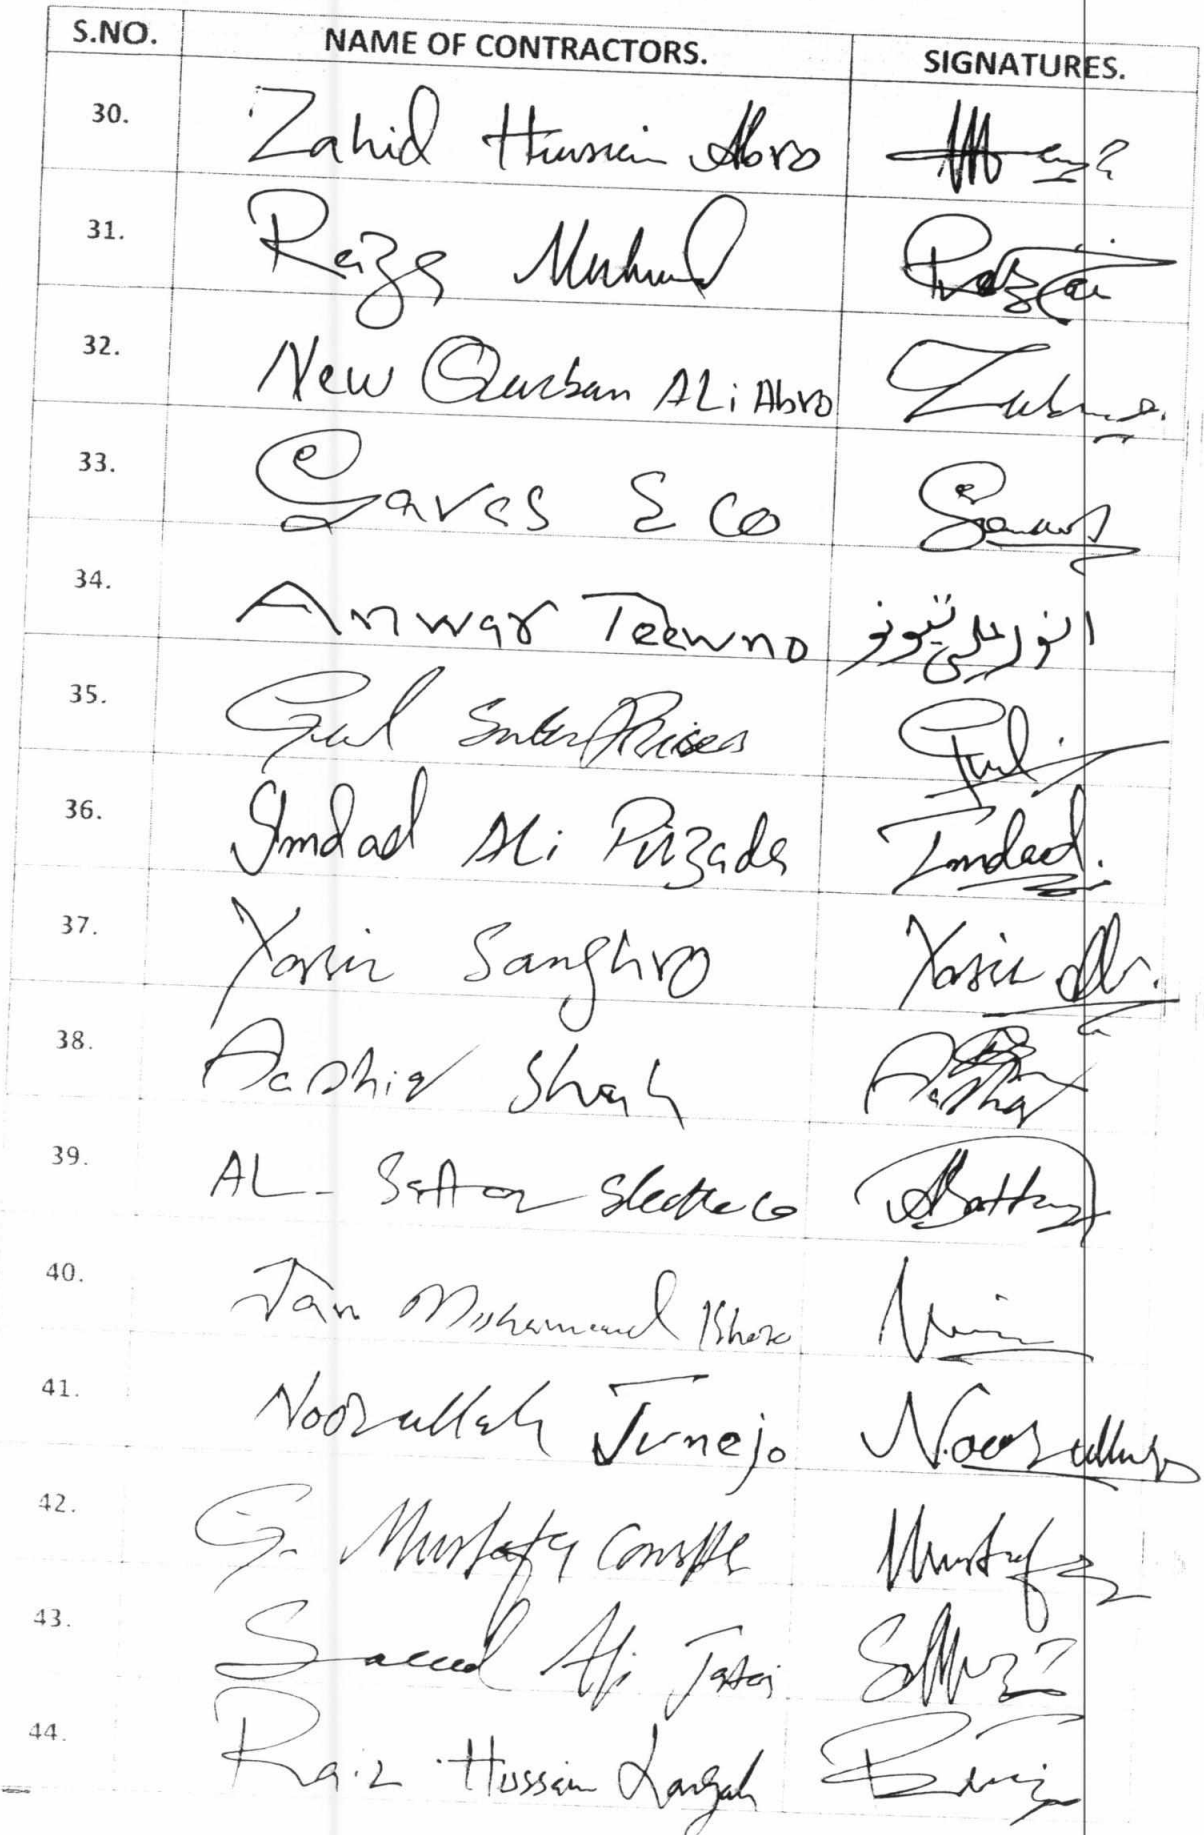 S.NO. NAME OF CONTRACTORS. SIGNATURES.
30. Zahid Hussain Abro
31. Raza Muhmd
32. New Qurban ALi Abro
33. & Co
34. Anwar Teewno انور علي تيونو
35. Gul EnterPrises Gul
36. Imdad ALi Pirzada Imdad.
37. Yasir Sanghro Yasir Ali.
38. Aashiq Shah
39. AL-Sattar Electric Co ASattar
40. Jan Mohammad Khoso
41. Noorullah Junejo Noorullah
42. G. Mustafa Mustafa
43. Saeed Ali Jatoi
44. Raiz Hussain Langah